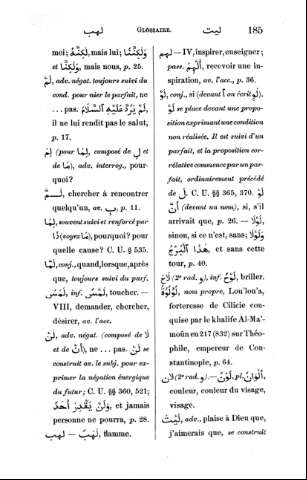 لهب GLOSSAIRE. ليت 185
moi; لٰكِنَّهُ, mais lui; وَلٰكِنَّنَا
et وَلٰكِنَّا, mais nous, p. 25.
لَمْ, adv. négat. toujours suivi du
cond. pour nier le parfait, ne
... pas. لَمْ يَرُدَّ عَلَيْهِ ٱلسَّلَامَ,
il ne lui rendit pas le salut,
p. 17.
لِمَ (pour لِمَا, composé de لِ et
de مَا), adv. interrog., pour-
quoi?
لَمَسَ, chercher à rencontrer
quelqu'un, av. ب. p. 11.
لِمَا, souvent suivi et renforcé par
ذَا (voyez مَا), pourquoi? pour
quelle cause? C. U. § 535.
لَمَّا, conj., quand, lorsque, après
que, toujours suivi du parf.
لَمَسَ, inf. لَمْس, toucher. —
VIII, demander, chercher,
désirer, av. l'acc.
لَنْ, adv. négat. (composé de لَا
et de أَنْ), ne ... pas. لَنْ se
construit av. le subj. pour ex-
primer la négation énergique
du futur; C. U. §§ 360, 521;
وَلَنْ يَقْدِرَ أَحَدٌ, et jamais
personne ne pourra, p. 28.
لهب — لَهَبٌ, flamme.
لهم — IV, inspirer, enseigner;
pass. أُلْهِمَ, recevoir une in-
spiration, av. l'acc., p. 36.
لَوْ, conj., si (devant ا on écrit لَوِ).
لَوْ se place devant une propo-
sition exprimant une condition
non réalisée. Il est suivi d'un
parfait, et la proposition cor-
rélative commence par un par-
fait, ordinairement précédé
de لَ. C. U. §§ 365, 370. لَوْ
أَنَّ (devant un nom), si, s'il
arrivait que, p. 26. — لَوْلَا,
sinon, si ce n'est, sans; وَلَوْلَا
هٰذَا ٱلْبُرْجُ et sans cette
tour, p. 40.
لاح (2e rad. و), inf. لَوْح, briller.
لُؤْلُؤَة, nom propre, Lou'lou'a,
forteresse de Cilicie con-
quise par le khalife Al-Ma'-
moûn en 217 (832) sur Théo-
phile, empereur de Con-
stantinople, p. 64.
لان (2e rad. و). — لَوْنٌ, pl. أَلْوَانٌ,
couleur, couleur du visage,
visage.
لَيْتَ, adv., plaise à Dieu que,
j'aimerais que, se construit